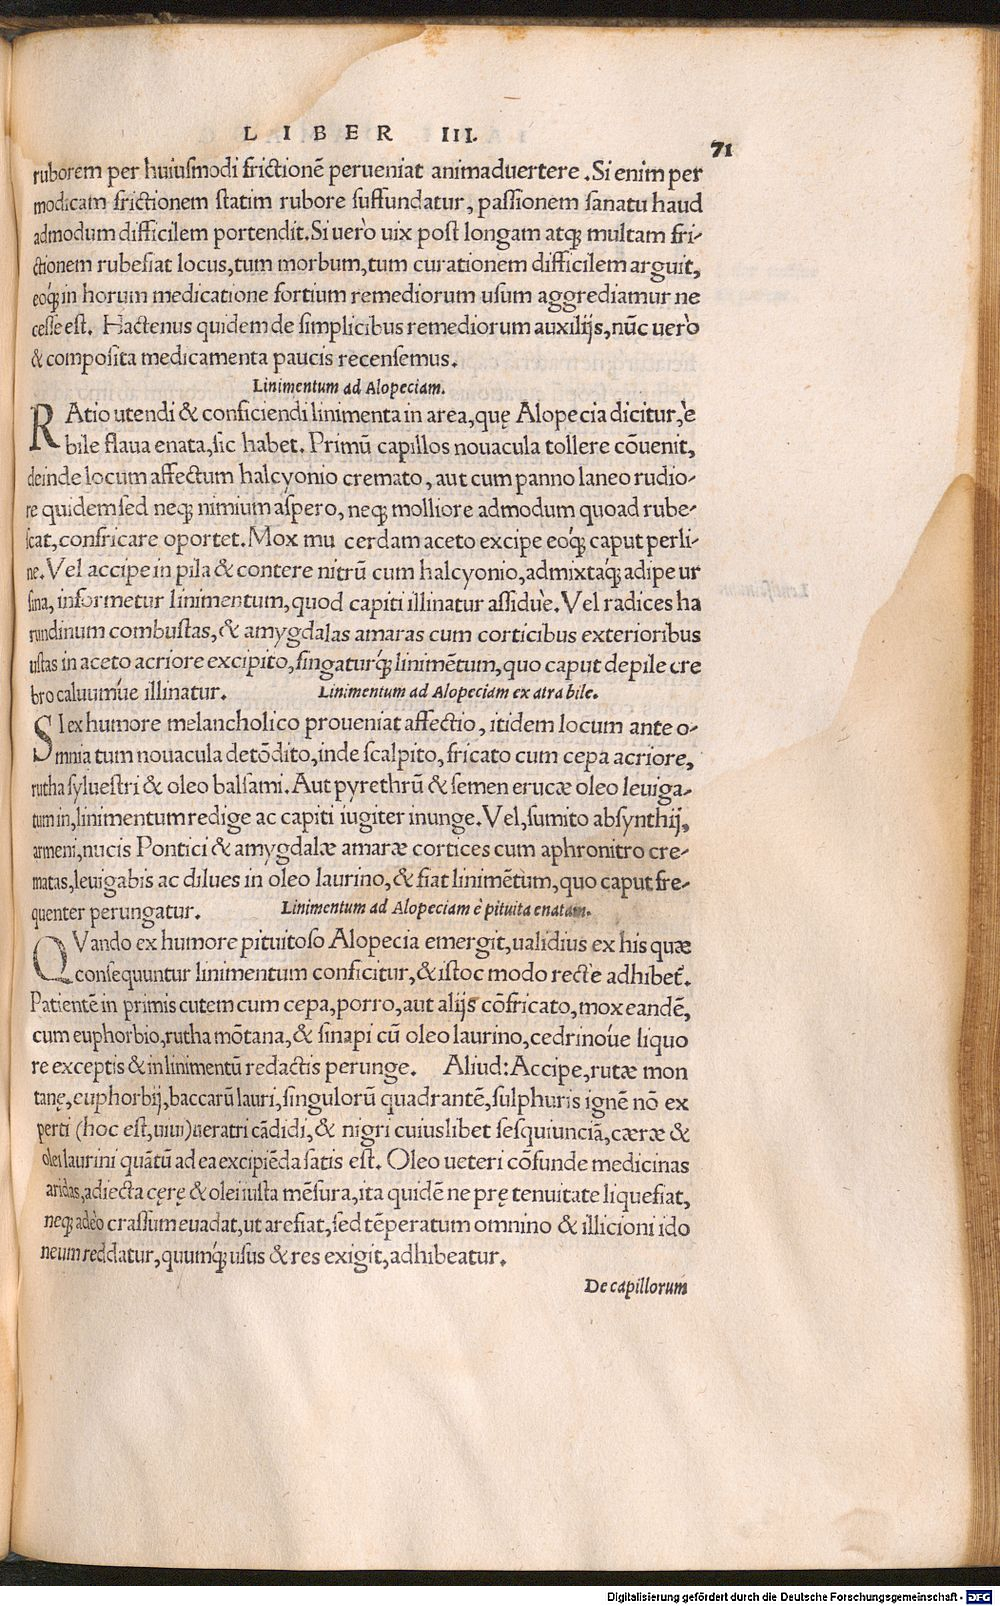 LIBER III.
71
ruborem per huiusmodi frictionē perueniat animaduertere. Si enim per
modicam frictionem statim rubore suffundatur, passionem sanatu haud
admodum difficilem portendit. Si uerò uix post longam atq; multam fri-
ctionem rubefiat locus, tum morbum, tum curationem difficilem arguit,
eoq́; in horum medicatione fortium remediorum usum aggrediamur ne
cesse est. Hactenus quidem de simplicibus remediorum auxilijs, nūc uerò
& composita medicamenta paucis recensemus.
Linimentum ad Alopeciam.
RAtio utendi & conficiendi linimenta in area, quę Alopecia dicitur, è
bile flaua enata, sic habet. Primū capillos nouacula tollere cōuenit,
deinde locum affectum halcyonio cremato, aut cum panno laneo rudio-
re quidem sed neq; nimium aspero, neq; molliore admodum quoad rube-
scat, confricare oportet. Mox mu cerdam aceto excipe eoq́; caput perli-
ne. Vel accipe in pila & contere nitrū cum halcyonio, admixtaq́; adipe ur
sina, informetur linimentum, quod capiti illinatur assiduè. Vel radices ha
rundinum combustas, & amygdalas amaras cum corticibus exterioribus
ustas in aceto acriore excipito, fingaturq́; linimētum, quo caput depile cre
bro caluumúe illinatur.
Linimentum ad Alopeciam ex atra bile.
SI ex humore melancholico proueniat affectio, itidem locum ante o-
mnia tum nouacula detōdito, inde scalpito, fricato cum cepa acriore,
rutha syluestri & oleo balsami. Aut pyrethrū & semen erucæ oleo leuiga-
tum in, linimentum redige ac capiti iugiter inunge. Vel, sumito absynthij,
armeni, nucis Pontici & amygdalæ amaræ cortices cum aphronitro cre-
matas, leuigabis ac dilues in oleo laurino, & fiat linimētum, quo caput fre-
quenter perungatur.
Linimentum ad Alopeciam è pituita enatam.
QVando ex humore pituitoso Alopecia emergit, ualidius ex his quæ
consequuntur linimentum conficitur, & istoc modo rectè adhibet̃.
Patientē in primis cutem cum cepa, porro, aut alijs cōfricato, mox eandē,
cum euphorbio, rutha mōtana, & sinapi cū oleo laurino, cedrinoúe liquo
re exceptis & in linimentū redactis perunge. Aliud: Accipe, rutæ mon
tanę, euphorbij, baccarū lauri, singulorū quadrantē, sulphuris ignē nō ex
perti (hoc est, uiui) ueratri cādidi, & nigri cuiuslibet sesquiunciā, cæræ &
olei laurini quātū ad ea excipiēda satis est. Oleo ueteri cōfunde medicinas
aridas, adiecta cęrę & olei iusta mēsura, ita quidē ne prę tenuitate liquefiat,
neq; adeò crassum euadat, ut arefiat, sed tēperatum omnino & illicioni ido
neum reddatur, quumq́; usus & res exigit, adhibeatur.
De capillorum
Digitalisierung gefördert durch die Deutsche Forschungsgemeinschaft - DFG